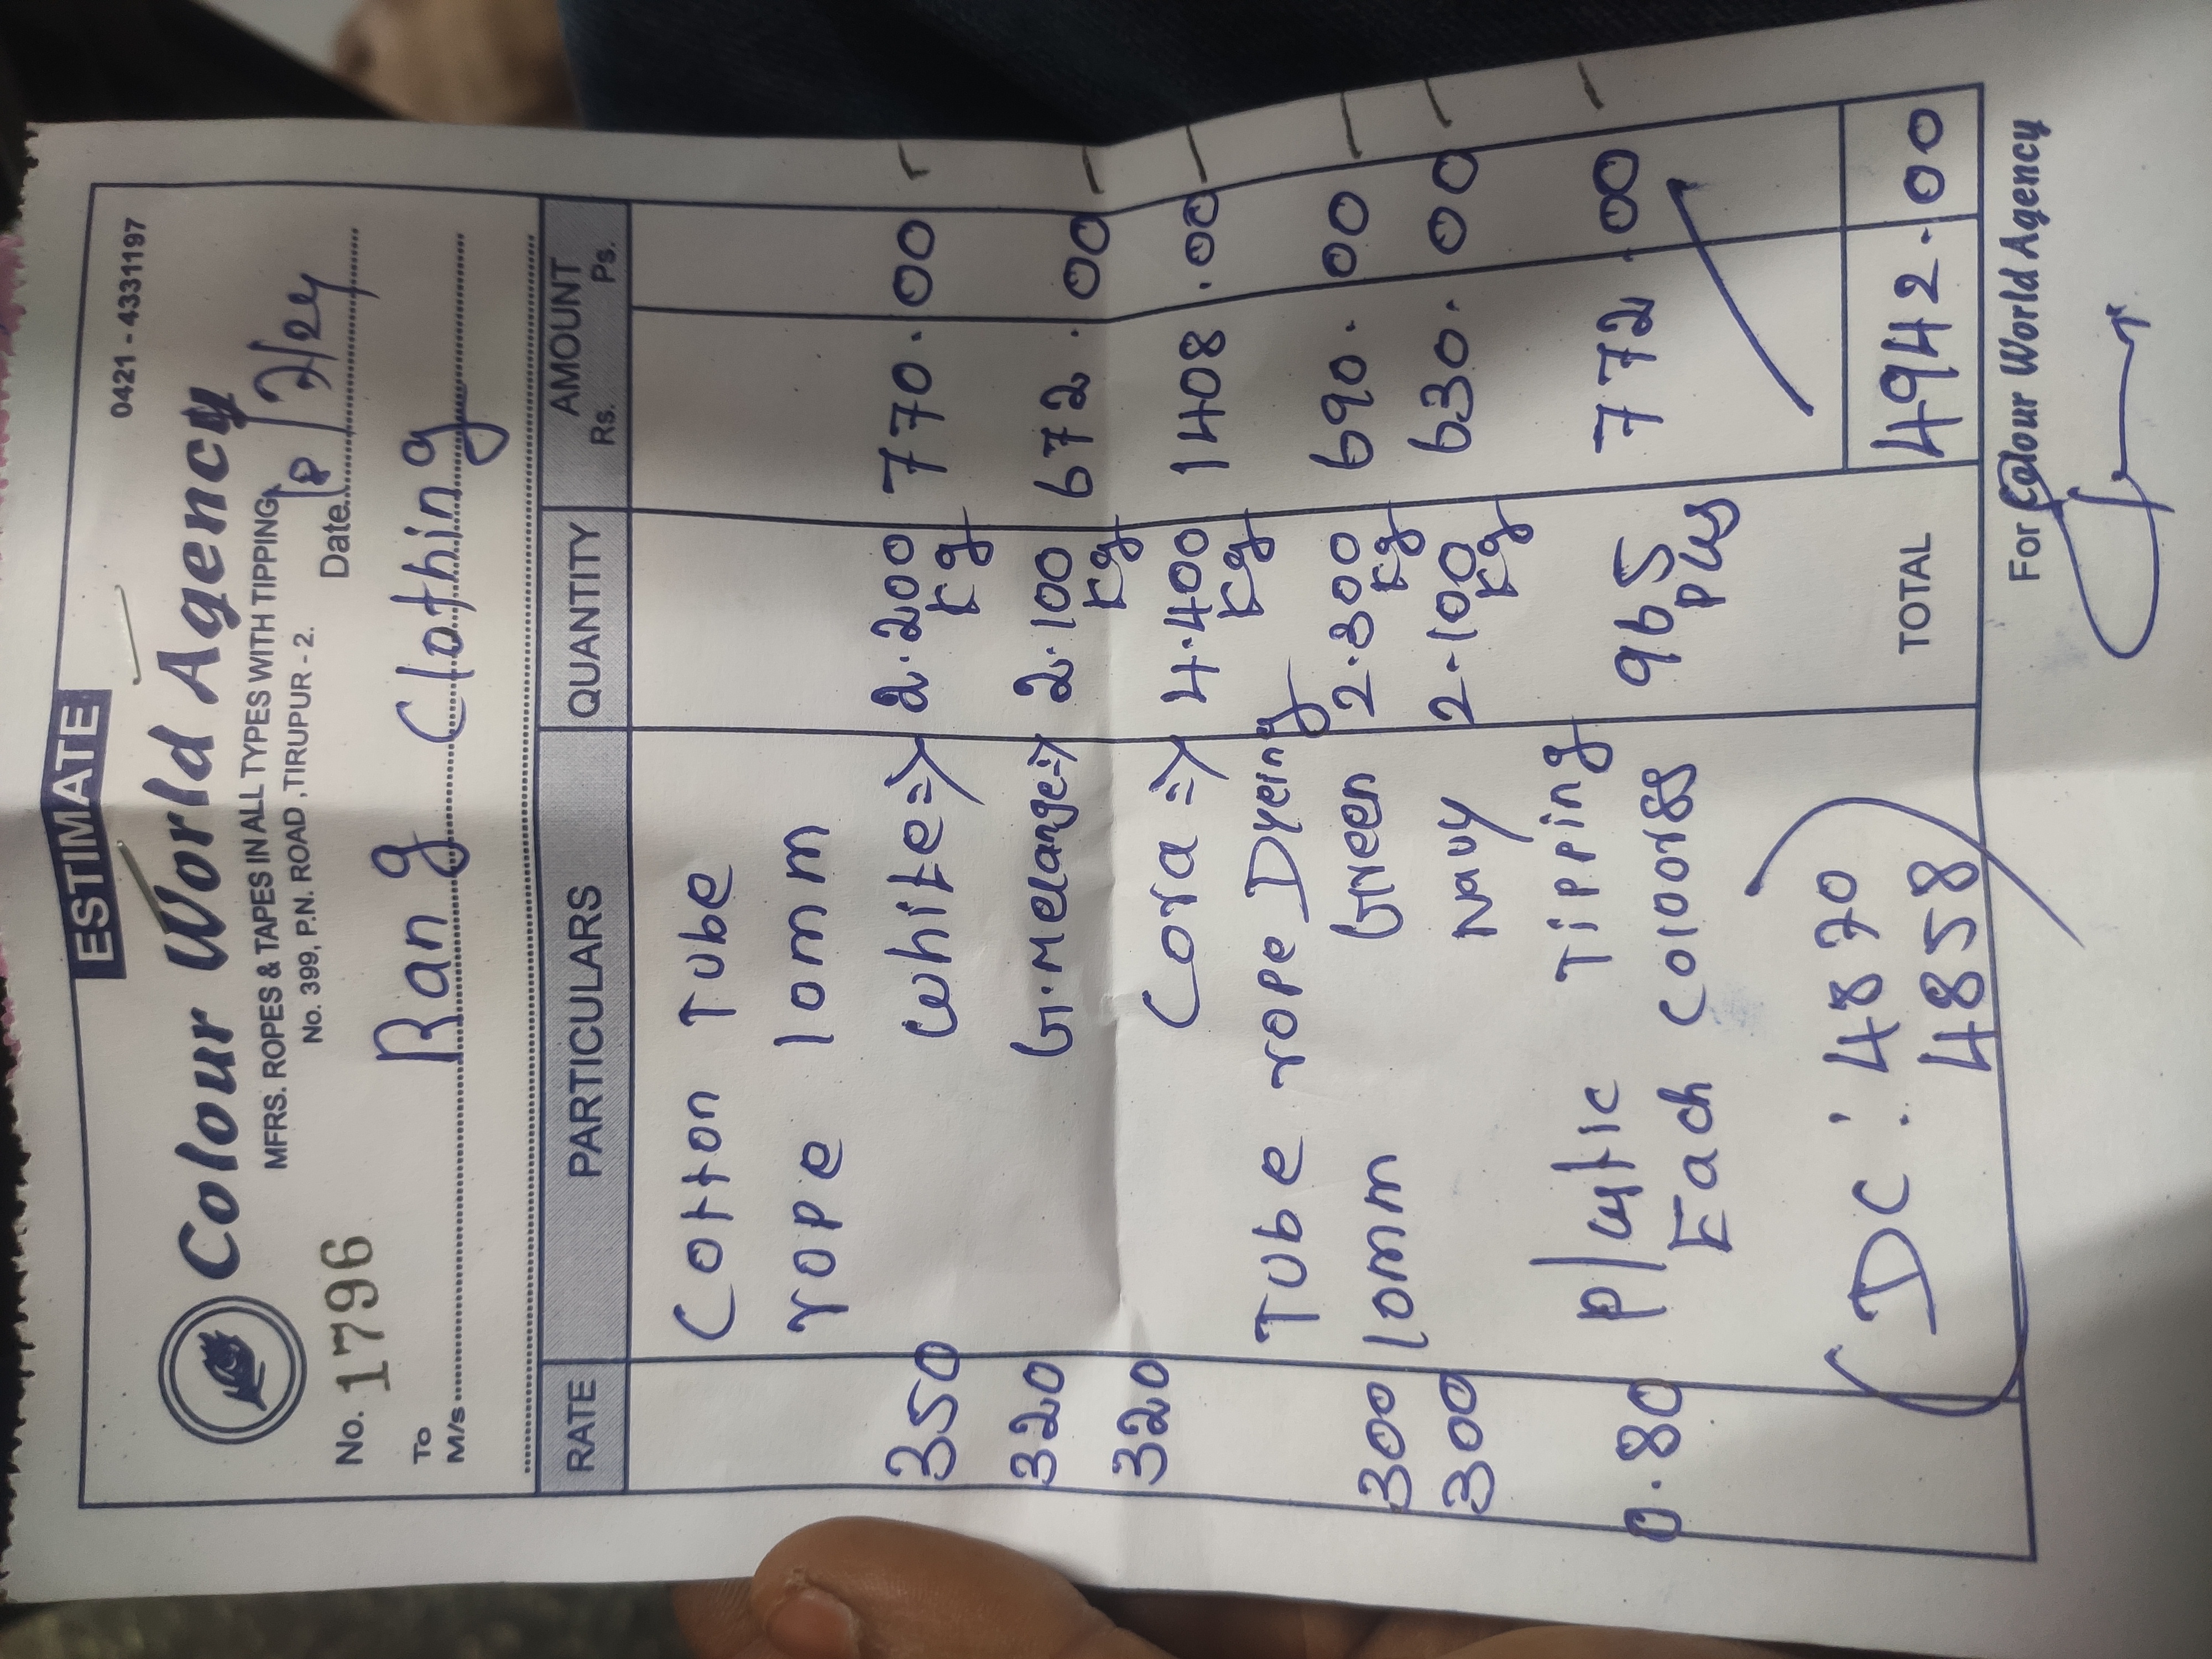 ESTIMATE
0421 - 4331197
Colour World Agency
MFRS. ROPES & TAPES IN ALL TYPES WITH TIPPING
No. 399, P.N. ROAD, TIRUPUR - 2.
No. 1796
Date 18/2/24
To
M/s Rang Clothing
RATE PARTICULARS QUANTITY AMOUNT
Rs. Ps.
Cotton Tube
rope 10mm
350 White => 2.200 Kg 770.00
320 G.Melange=> 2.100 Kg 672.00
320 Cora => 4.400 Kg 1408.00
Tube rope Dyeing
300 10mm Green 2.300 Kg 690.00
300 Navy 2.100 Kg 630.00
Plastic Tipping
0.80 Each Coloors 965 pcs 772.00
DC : 4870
4858
TOTAL 4942.00
For Colour World Agency